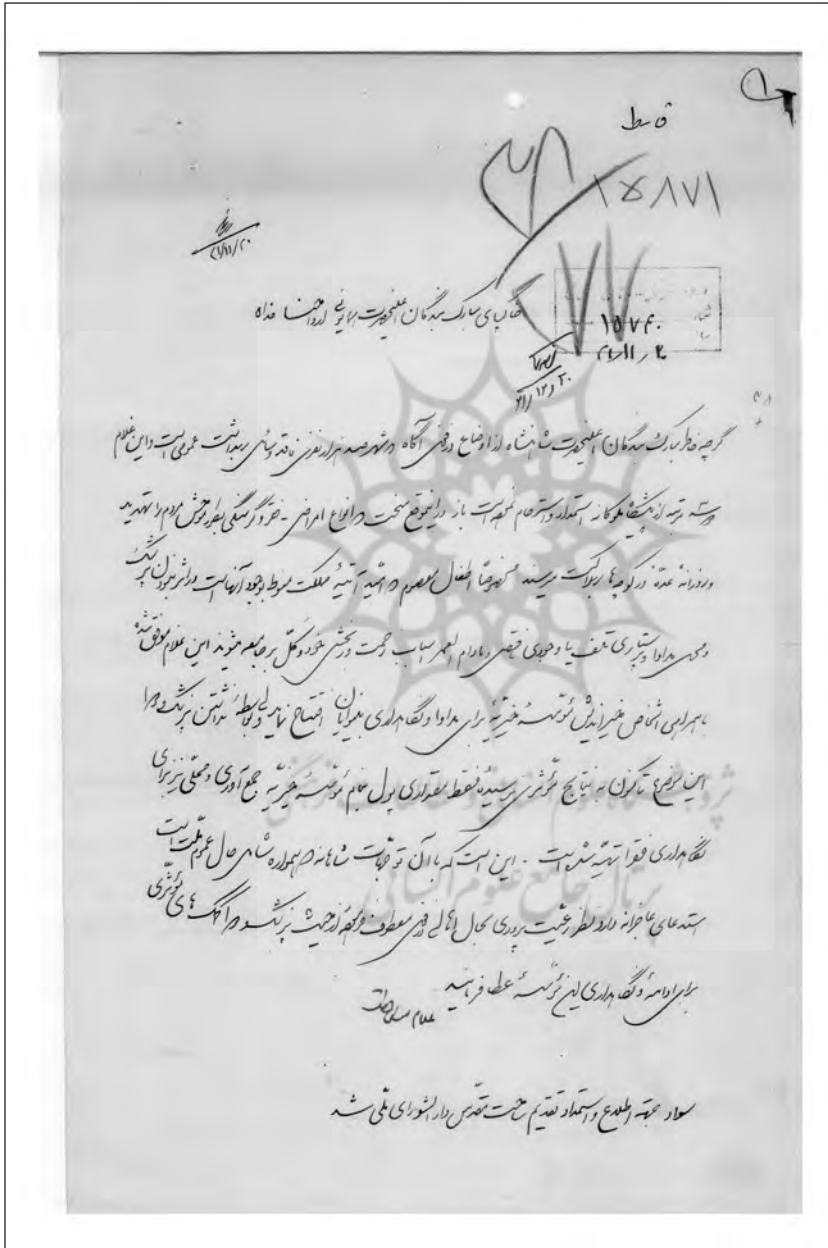 ۱۵۸۷۱
۲۱/۱۱/۲۰
خاکپای مبارک بندگان اعلیحضرت همایونی ارواحنا فداه
۱۵۷۴۰
۲۱/۱۲/۲۰
گرچه خاطر مبارک بندگان اعلیحضرت شاهنشاه از اوضاع دزفول آگاه و شهر صد هزار نفری فاقد وسائل بهداشت عمومی است و این غلام
سه مرتبه از پیشگاه ملوکانه استمداد و استرحام نموده است باز در این موقع سخت که انواع امراض - فقر و گرسنگی بطور موحش مردم را تهدید
و روزانه عده در کوچه ها بهلاکت میرسند مخصوصاً اطفال معصوم که امید آتیهٔ مملکت منوط بوجود آنهاست در اثر نبودن پزشک
و محل مداوا و پرستاری تلف یا وجودی ناقص و مادام العمر اسباب زحمت و بدبختی خود و کَلّ بر جامعه میشوند این غلام موفق شده
با همراهی اشخاص خیراندیش مؤسسهٔ خیریهٔ برای مداوا و نگاهداری بینوایان افتتاح نماید ولی بواسطهٔ نداشتن پزشک و دوا
این موضوع تاکنون به نتایج مؤثری نرسیده فقط مقداری پول بنام مؤسسهٔ خیریه جمع آوری و محلی نیز برای
نگاهداری فقرا تهیه شده است - این است که با آن توجهات شاهانه که همواره شامل حال عموم ملت است
استدعای عاجزانه دارد نظر رعیت پروری بحال اهالی دزفول معطوف و از حیث پزشک و دوا کمک های مؤثری
برای ادامه و نگاهداری این مؤسسه عطا فرمایند
سواد جهة اطلاع و استمداد تقدیم ساحت مقدس دارالشورای ملی شد
پژوهشگاه علوم انسانی و مطالعات فرهنگی
پرتال جامع علوم انسانی